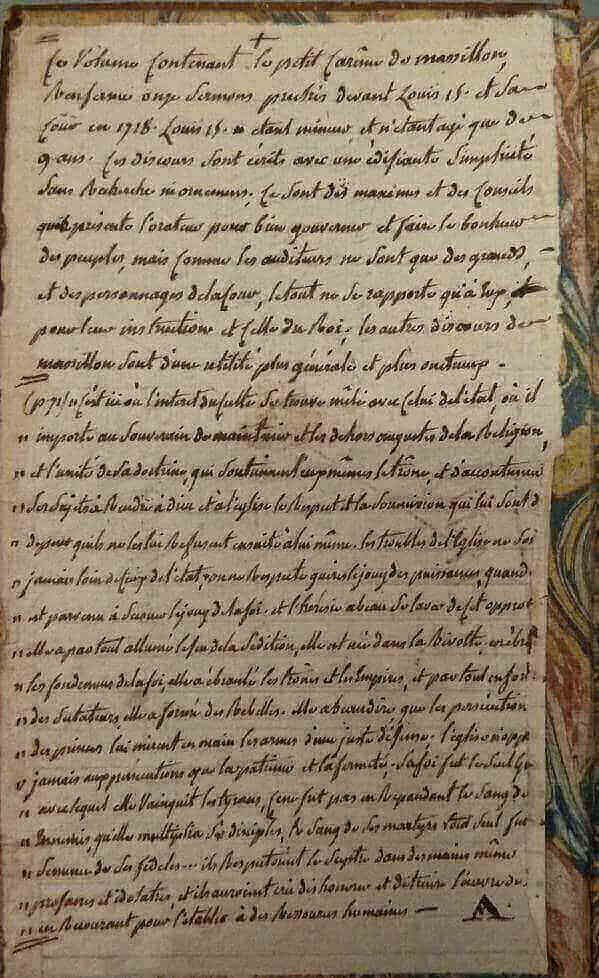 Ce Volume Contenant le petit Carême de massillon,
Renferme onze Sermons prechés devant Louis 15. et Sa
Cour en 1718. Louis 15. n etant mineur, et n'etant agé que de
9 ans. Ces discours sont écrits avec une édifiante Simplicité
Sans Recherche ni ornemens, Ce sont des maximes et des Conseils
que présente l'orateur pour bien gouverner et faire le bonheur
des peuples, mais Comme les auditeurs ne sont que des grands,
et des personnages de la Cour, le tout ne se rapporte qu'à eux,
pour leur instruction et Celle du Roi; les autres discours de
massillon sont d'une utilité plus générale et plus onctueux.
(p. 71) C'est ici où l'interet du Culte Se trouve mêlé avec Celui de l'état, où il
" importe au Souverain de maintenir et les dehors augustes de la Religion,
" et l'unité de Sa doctrine, qui Soutiennent eux mêmes le trône, et d'accoutumer
" Ses Sujets à Rendre à dieu et à l'église le Respect et la Soumission qui lui Sont d
" de peur qu'ils ne les lui Refusent ensuite à lui même. les troubles de l'Eglise ne Son
" jamais loin de Ceux de l'état, on ne Respecte guères le joug des puissances, quand
" est parvenu à Secouer le joug de la foi. et l'héresie a beau Se laver de Cet opprob
" elle a partout allumé le feu de la Sédition, elle est née dans la Révolte, en ébra
" les fondemens de la foi, elle a ébranlé les trônes et les Empires, et partout en for
" des Sectateurs, elle a formé des Rebelles. elle a beau dire, que les persécution
" des princes lui mirent en main les armes d'une juste défense. l'église n'oppo
" jamais aux persécutions que la patience et la fermeté. Sa foi fut le Seul gl
" avec lequel elle vainquit les tyrans, Ce ne fut pas en Repandant le Sang de
" Ennemis, qu'elle multiplia Ses disciples, le Sang de Ses martyrs tout Seul fut
" Semence de Ses fideles.. ils Respectoient le Sceptre dans des mains même
" profanes et idolatres, et ils auroient cru dishonorer et détruire l'œuvre de
" en Recourant pour l'établir à des Ressources humaines —